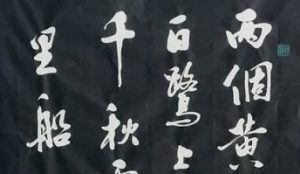 兩個黃
白鷺上
千秋雪
里船